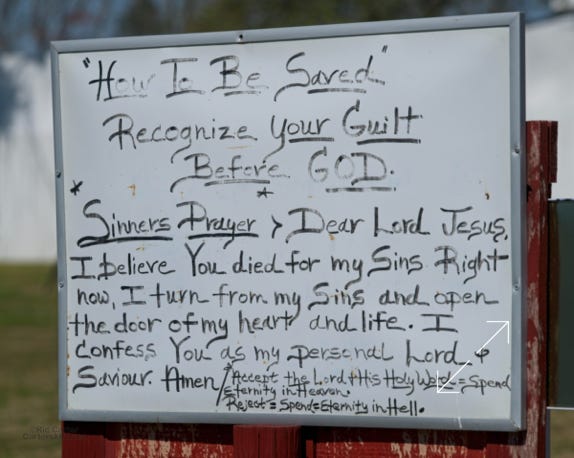 "How To Be Saved"
Recognize Your Guilt
Before GOD.
* *
Sinners Prayer > Dear Lord Jesus,
I believe You died for my Sins Right
now, I turn from my Sins and open
the door of my heart and life. I
confess You as my personal Lord &
Saviour. Amen/
*Accept the Lord & His Holy Word = Spend
Eternity in Heaven.
Reject = Spend = Eternity in Hell.